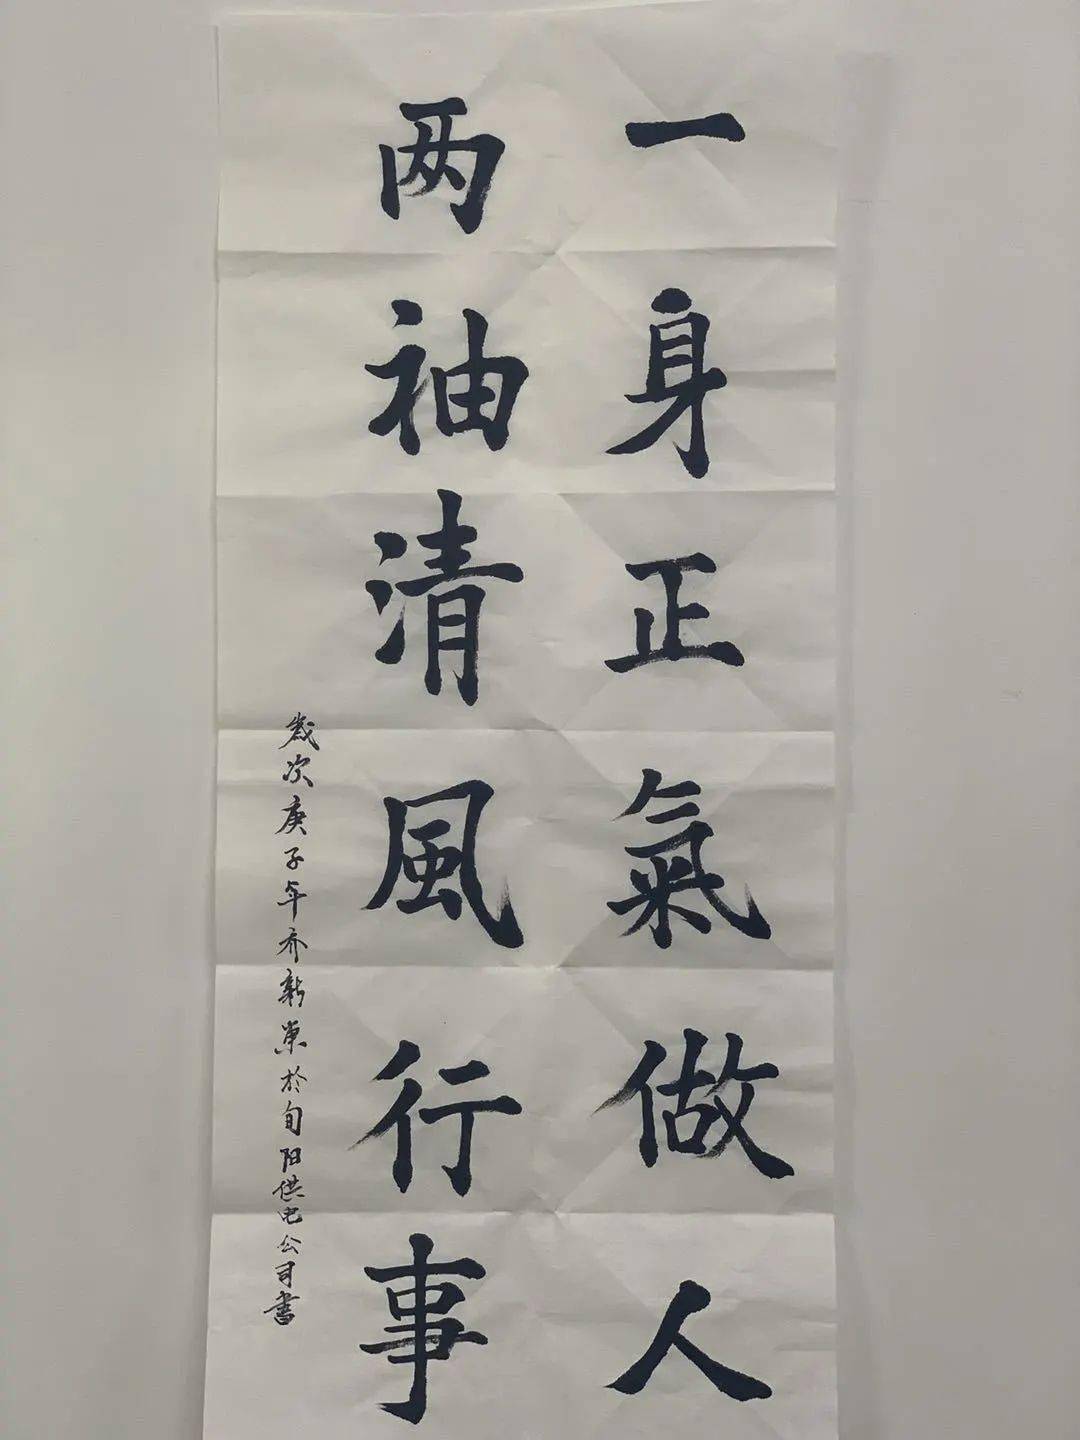 一身正氣做人
两袖清風行事
歲次庚子年乔新築於旬阳供电公司書